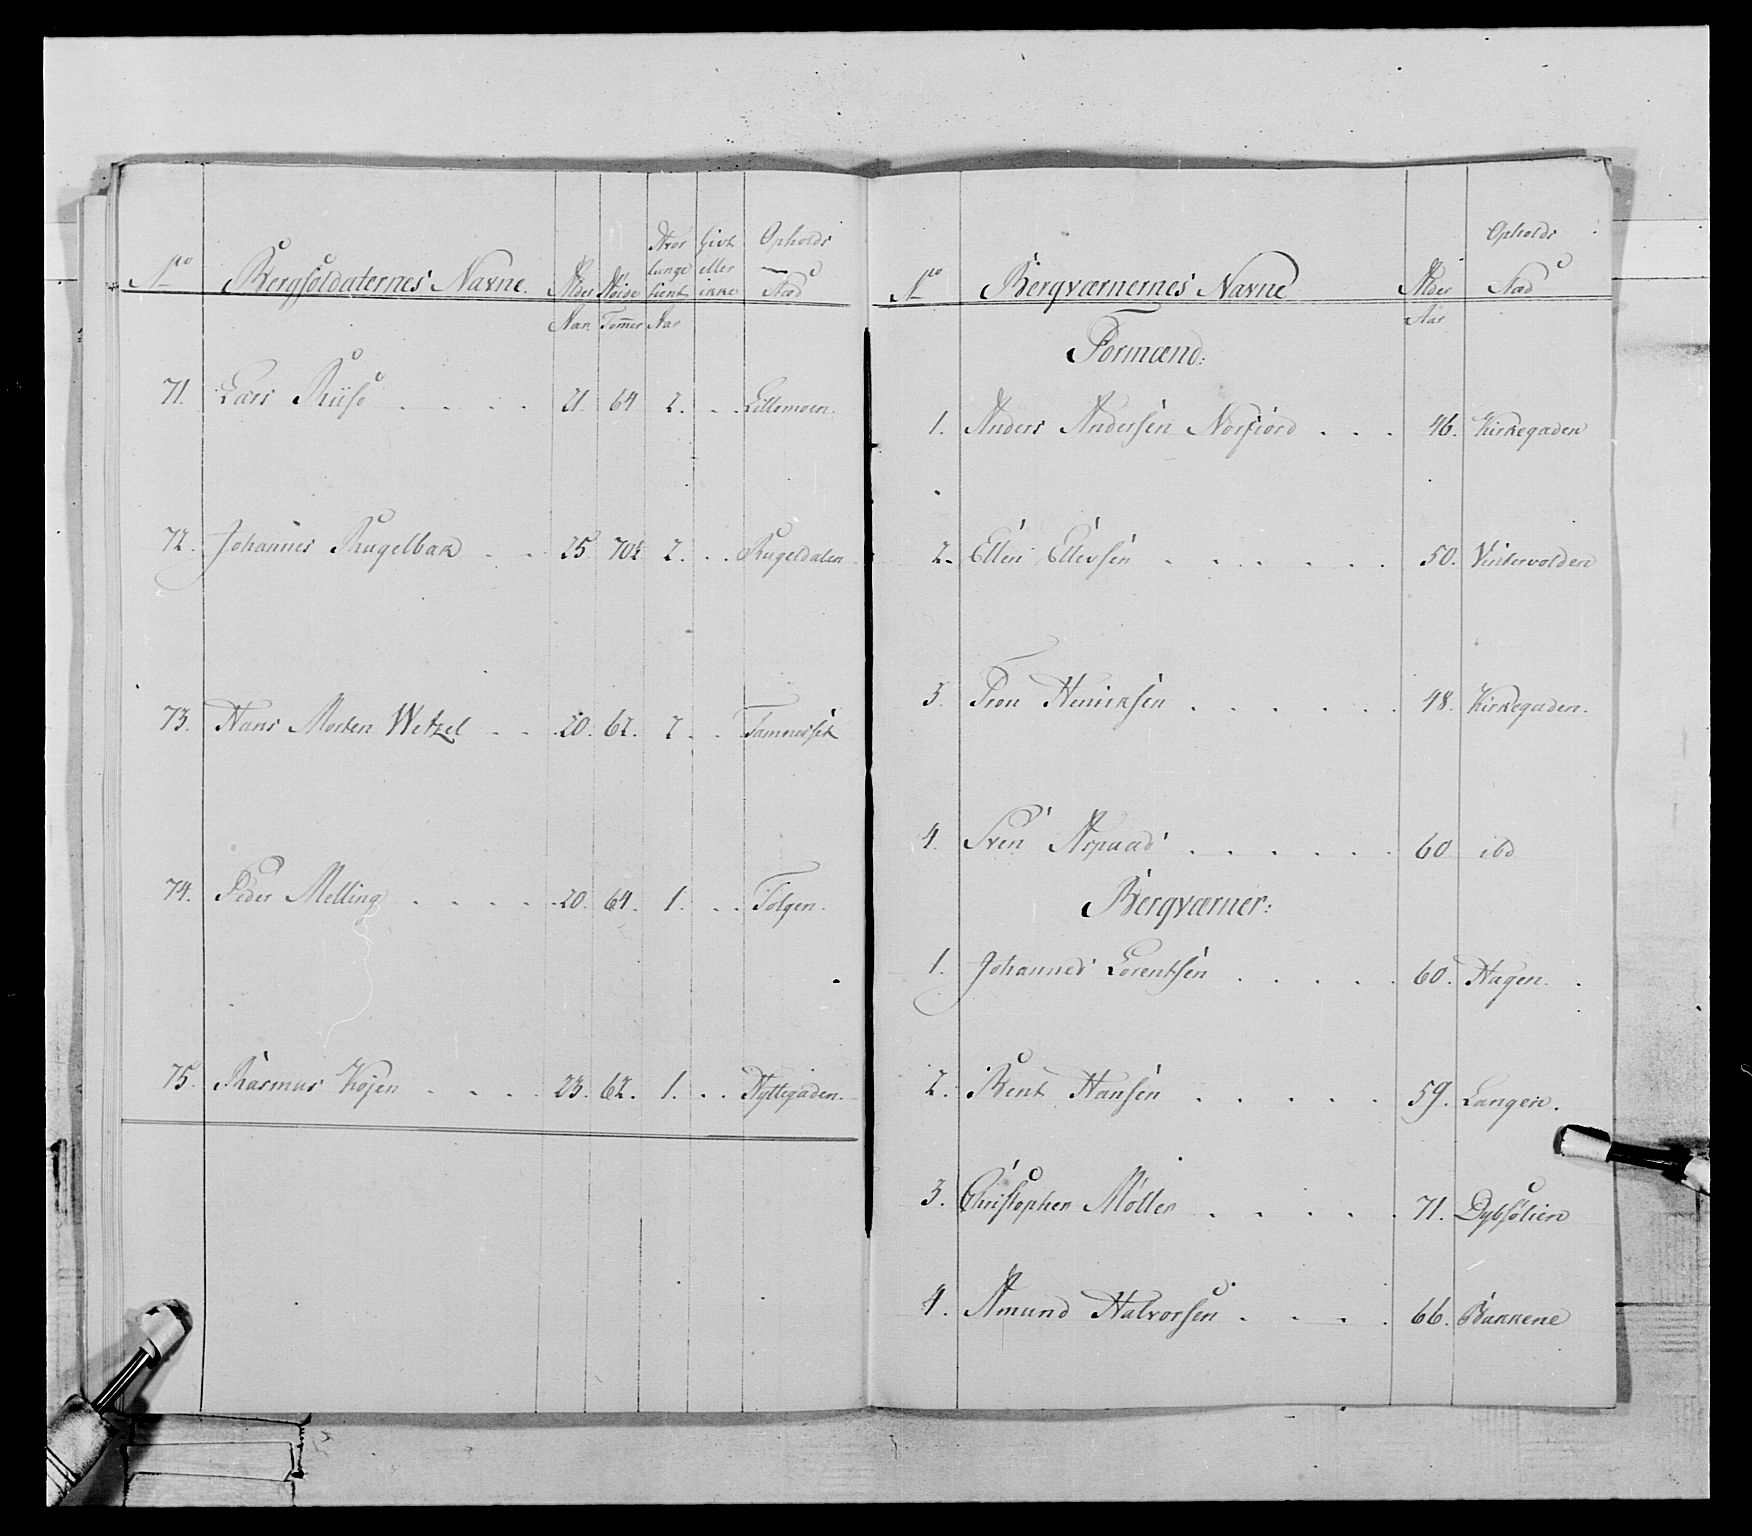 No Bergsoldaternes Navne. Alder Høide Hvor længe tient Givt eller ikke Opholds Stæd
Aar. Tomer Aar
71. Lars Riise . . . . 21. 64 2. . . Lillemoen.
72. Johannes Rugelbak . . 25. 70½ 2. . . Rugeldalen
73. Hans Morten Wetzel . . 20. 62. 2 . . Tamnesset
74. Peder Melling . . . . 20. 64. 1. . . Tolgen.
75. Rasmus Kojen . . . . 23. 62. 1. . . Hyttegaden.
No Bergværnernes Navne Alder Opholds Stæd
Aar
Formænd:
1. Anders Andersen Norfiord . . . 46. Kirkegaden
2. Ellen Ellevsen . . . . . . 50. Vintervolden
3. Tron Henriksen . . . . . 48. Kirkegaden.
4. Sven Aspaas . . . . . . 60. ibd
Bergværner:
1. Johannes Lorentsen . . . . 60. Hagen.
2. Bent Hansen . . . . . 59. Langen.
3. Christopher Møller . . . . . 71. Dybsølien
4. Amund Halvorsen . . . . 66. Bakkene